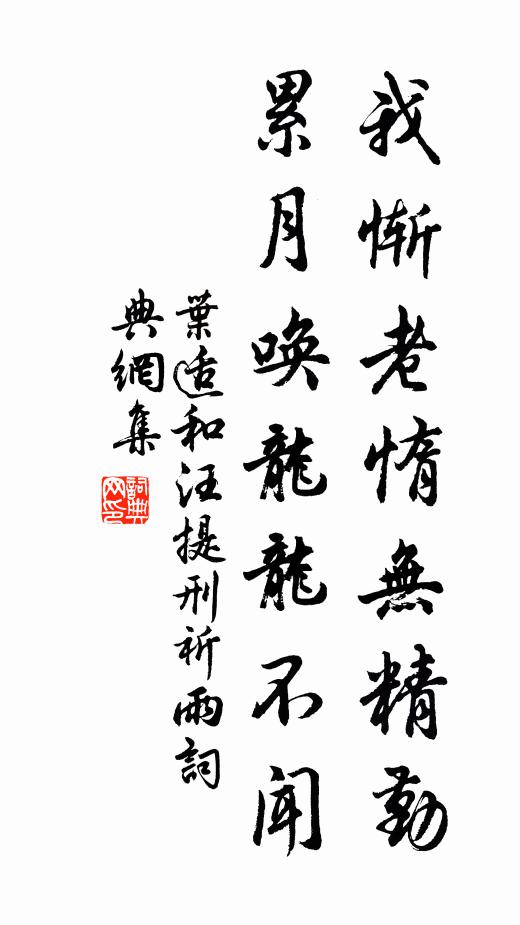 我慚老惰無精勤
累月喚龍龍不聞
葉适和汪提刑祈雨詞
典網集
詞典网印